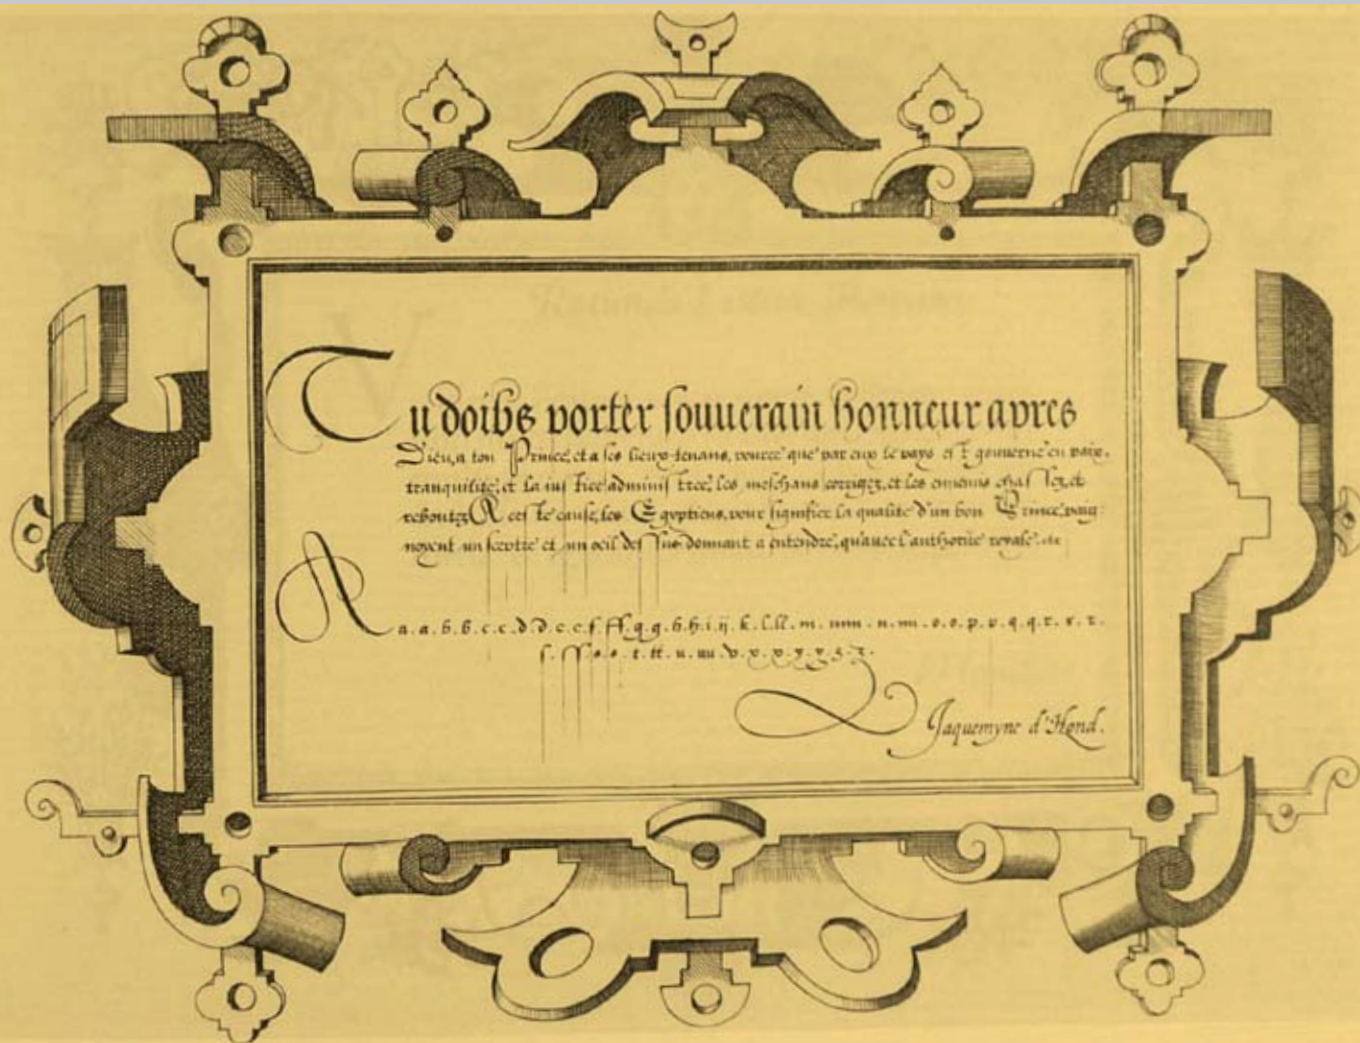 Tu doibs porter souuerain honneur apres
Dieu, a ton Prince, et a ses lieux-tenans, pource que par eux le pays est gouuerné en paix,
tranquilité, et la iustice administree, les meschans corrigez, et les ennemis chassez, et
reboutez A ceste cause, les Egyptiens, pour signifier la qualité d'un bon Prince, paig-
noyent un sceptre et un oeil dessus donnant a entendre, qu'auec l'authorité royale. etc
A a . a . b . b . c . c . d . d . e . e . f . ff . g . g . h . h . i . ij . k . l . ll . m . mm . n . nn . o . o . p . p . q . q . r . r . r .
s . ss . s . s . t . tt . u . uu . v . x . x . y . y . z . z .
Jaquemyne d'Hond.